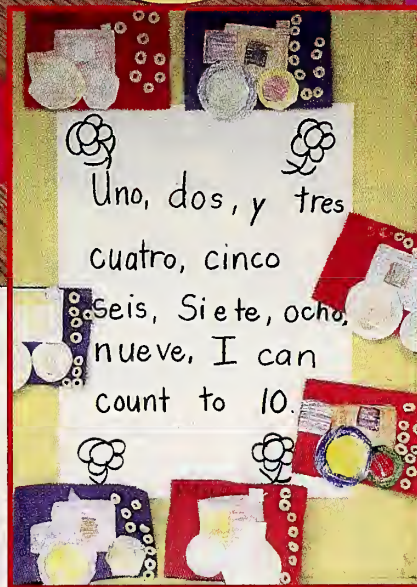 Uno, dos, y tres
cuatro, cinco
seis, Siete, ocho,
nueve, I can
count to 10.